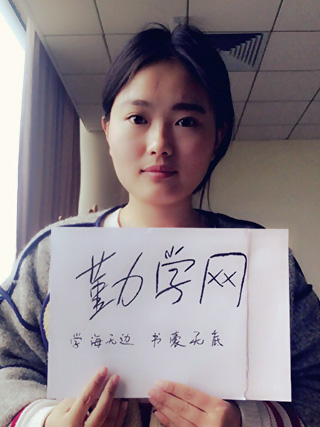 勤学网
学海无边 书囊无底